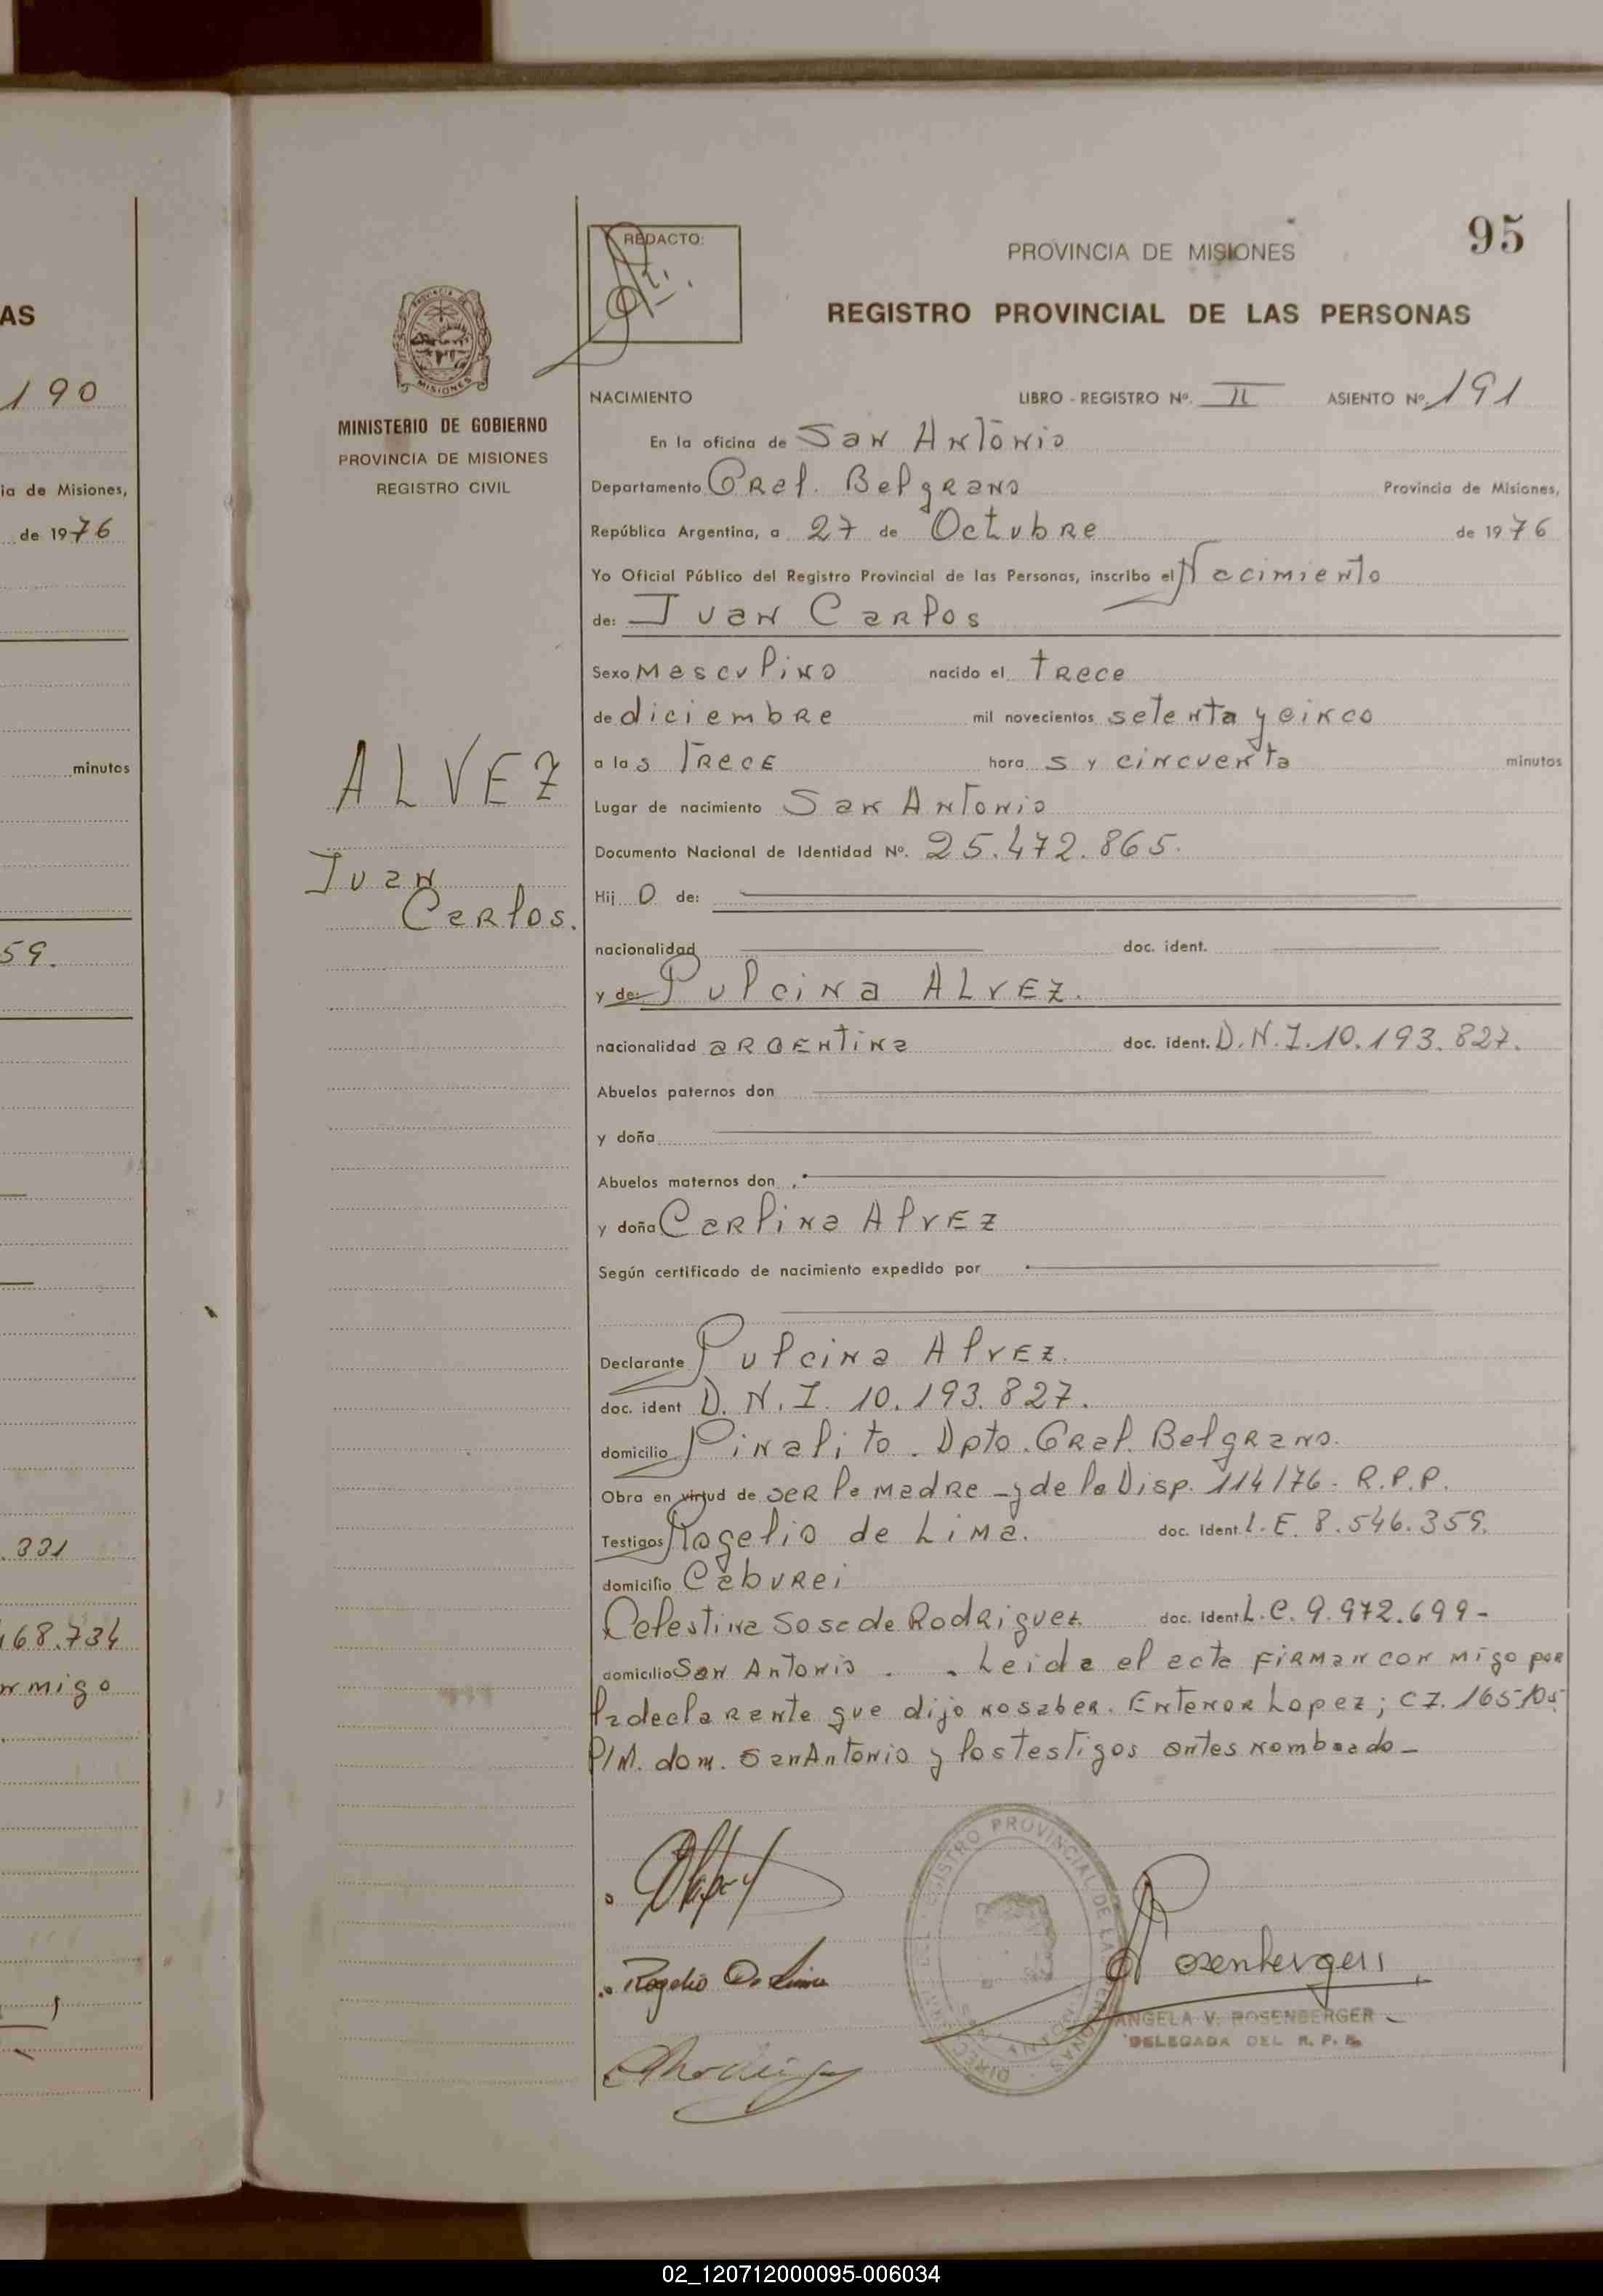 AS
190
ia de Misiones,
de 1976
minutos
59.
331
168.734
n migo
95
REDACTO:
PROVINCIA DE MISIONES
REGISTRO PROVINCIAL DE LAS PERSONAS
PROVINCIA DE
MISIONES
MINISTERIO DE GOBIERNO
PROVINCIA DE MISIONES
REGISTRO CIVIL
NACIMIENTO LIBRO - REGISTRO Nº. II ASIENTO Nº. 191
En la oficina de San Antonio
Departamento Gral. Belgrano Provincia de Misiones,
República Argentina, a 27 de Octubre de 1976
Yo Oficial Público del Registro Provincial de las Personas, inscribo el Nacimiento
de: Juan Carlos
Sexo Masculino nacido el trece
de diciembre mil novecientos setenta y cinco
ALVEZ
Juan
Carlos.
a las trece hora s y cincuenta minutos
Lugar de nacimiento San Antonio
Documento Nacional de Identidad Nº. 25.472.865.
Hij o de:
nacionalidad doc. ident.
y de: Pulcina ALVEZ.
nacionalidad argentina doc. ident. D.N.I. 10.193.827.
Abuelos paternos don
y doña
Abuelos maternos don
y doña Carlina Alvez
Según certificado de nacimiento expedido por
Declarante Pulcina Alvez.
doc. ident D.N.I. 10.193.827.
domicilio Pinalito. Dpto. Gral. Belgrano.
Obra en virtud de ser la madre - y de la Disp. 114/76 - R.P.P.
Testigos Rogelio de Lima. doc. Ident. L.E. 8.546.359.
domicilio Caburei
Celestina Sosa de Rodriguez doc. Ident. L.C. 9.972.699-
domicilio San Antonio . . Leida el acta firman con migo por
la declarante que dijo no saber. Entenor Lopez; CI. 165.105
P/M. dom. San Antonio y los testigos antes nombrado-
Rogelio De Lima
REGISTRO PROVINCIAL DE LAS PERSONAS
Rosenberger
ANGELA V. ROSENBERGER
DELEGADA DEL R. P. P.
02_120712000095-006034